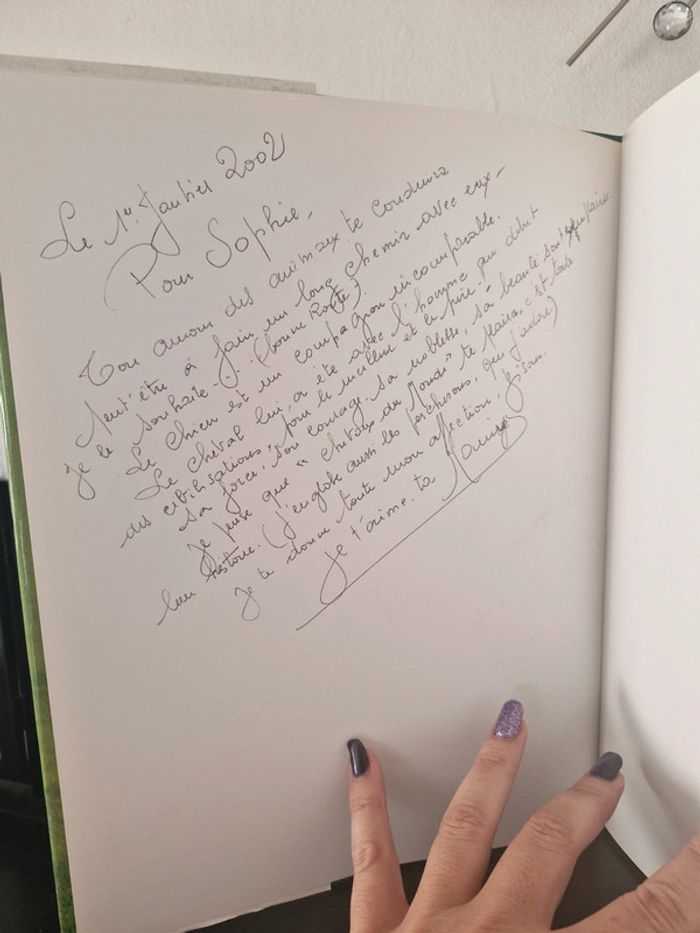 Le 1er Janvier 2002
Pour Sophie,
Ton amour des animaux te conduira
peut-être à faire un long chemin avec eux -
je le souhaite... (bonne Route).
Le chien est un compagnon incomparable.
Le cheval lui, a été avec l'homme au début
des civilisations, pour le meilleur et le pire.
Sa force, son courage, sa noblesse, sa beauté sont
Je pense que "chevaux du Monde" te plaira, c'est toute
leur histoire. (J'englobe aussi les percherons, que j'adore)
Je te donne toute mon affection, bisous.
Je t'aime. ta